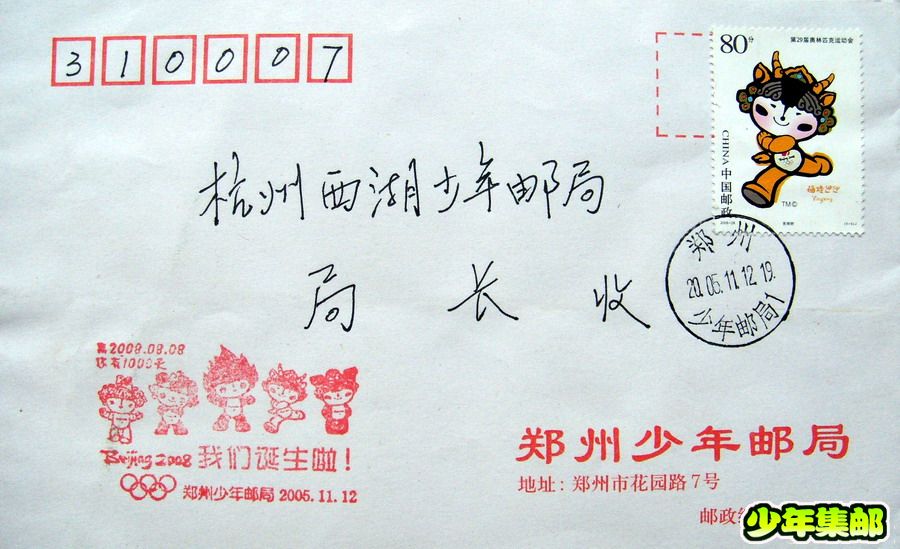 310007
80分
第29届奥林匹克运动会
CHINA 中国邮政
福娃迎迎
Yingying
TM ©
杭州西湖少年邮局
局 长 收
郑州
2005.11.12.19
少年邮局1
离2008.08.08
还有1000天
Beijing 2008 我们诞生啦！
郑州少年邮局 2005.11.12
郑州少年邮局
地址：郑州市花园路7号
邮政
少年集邮